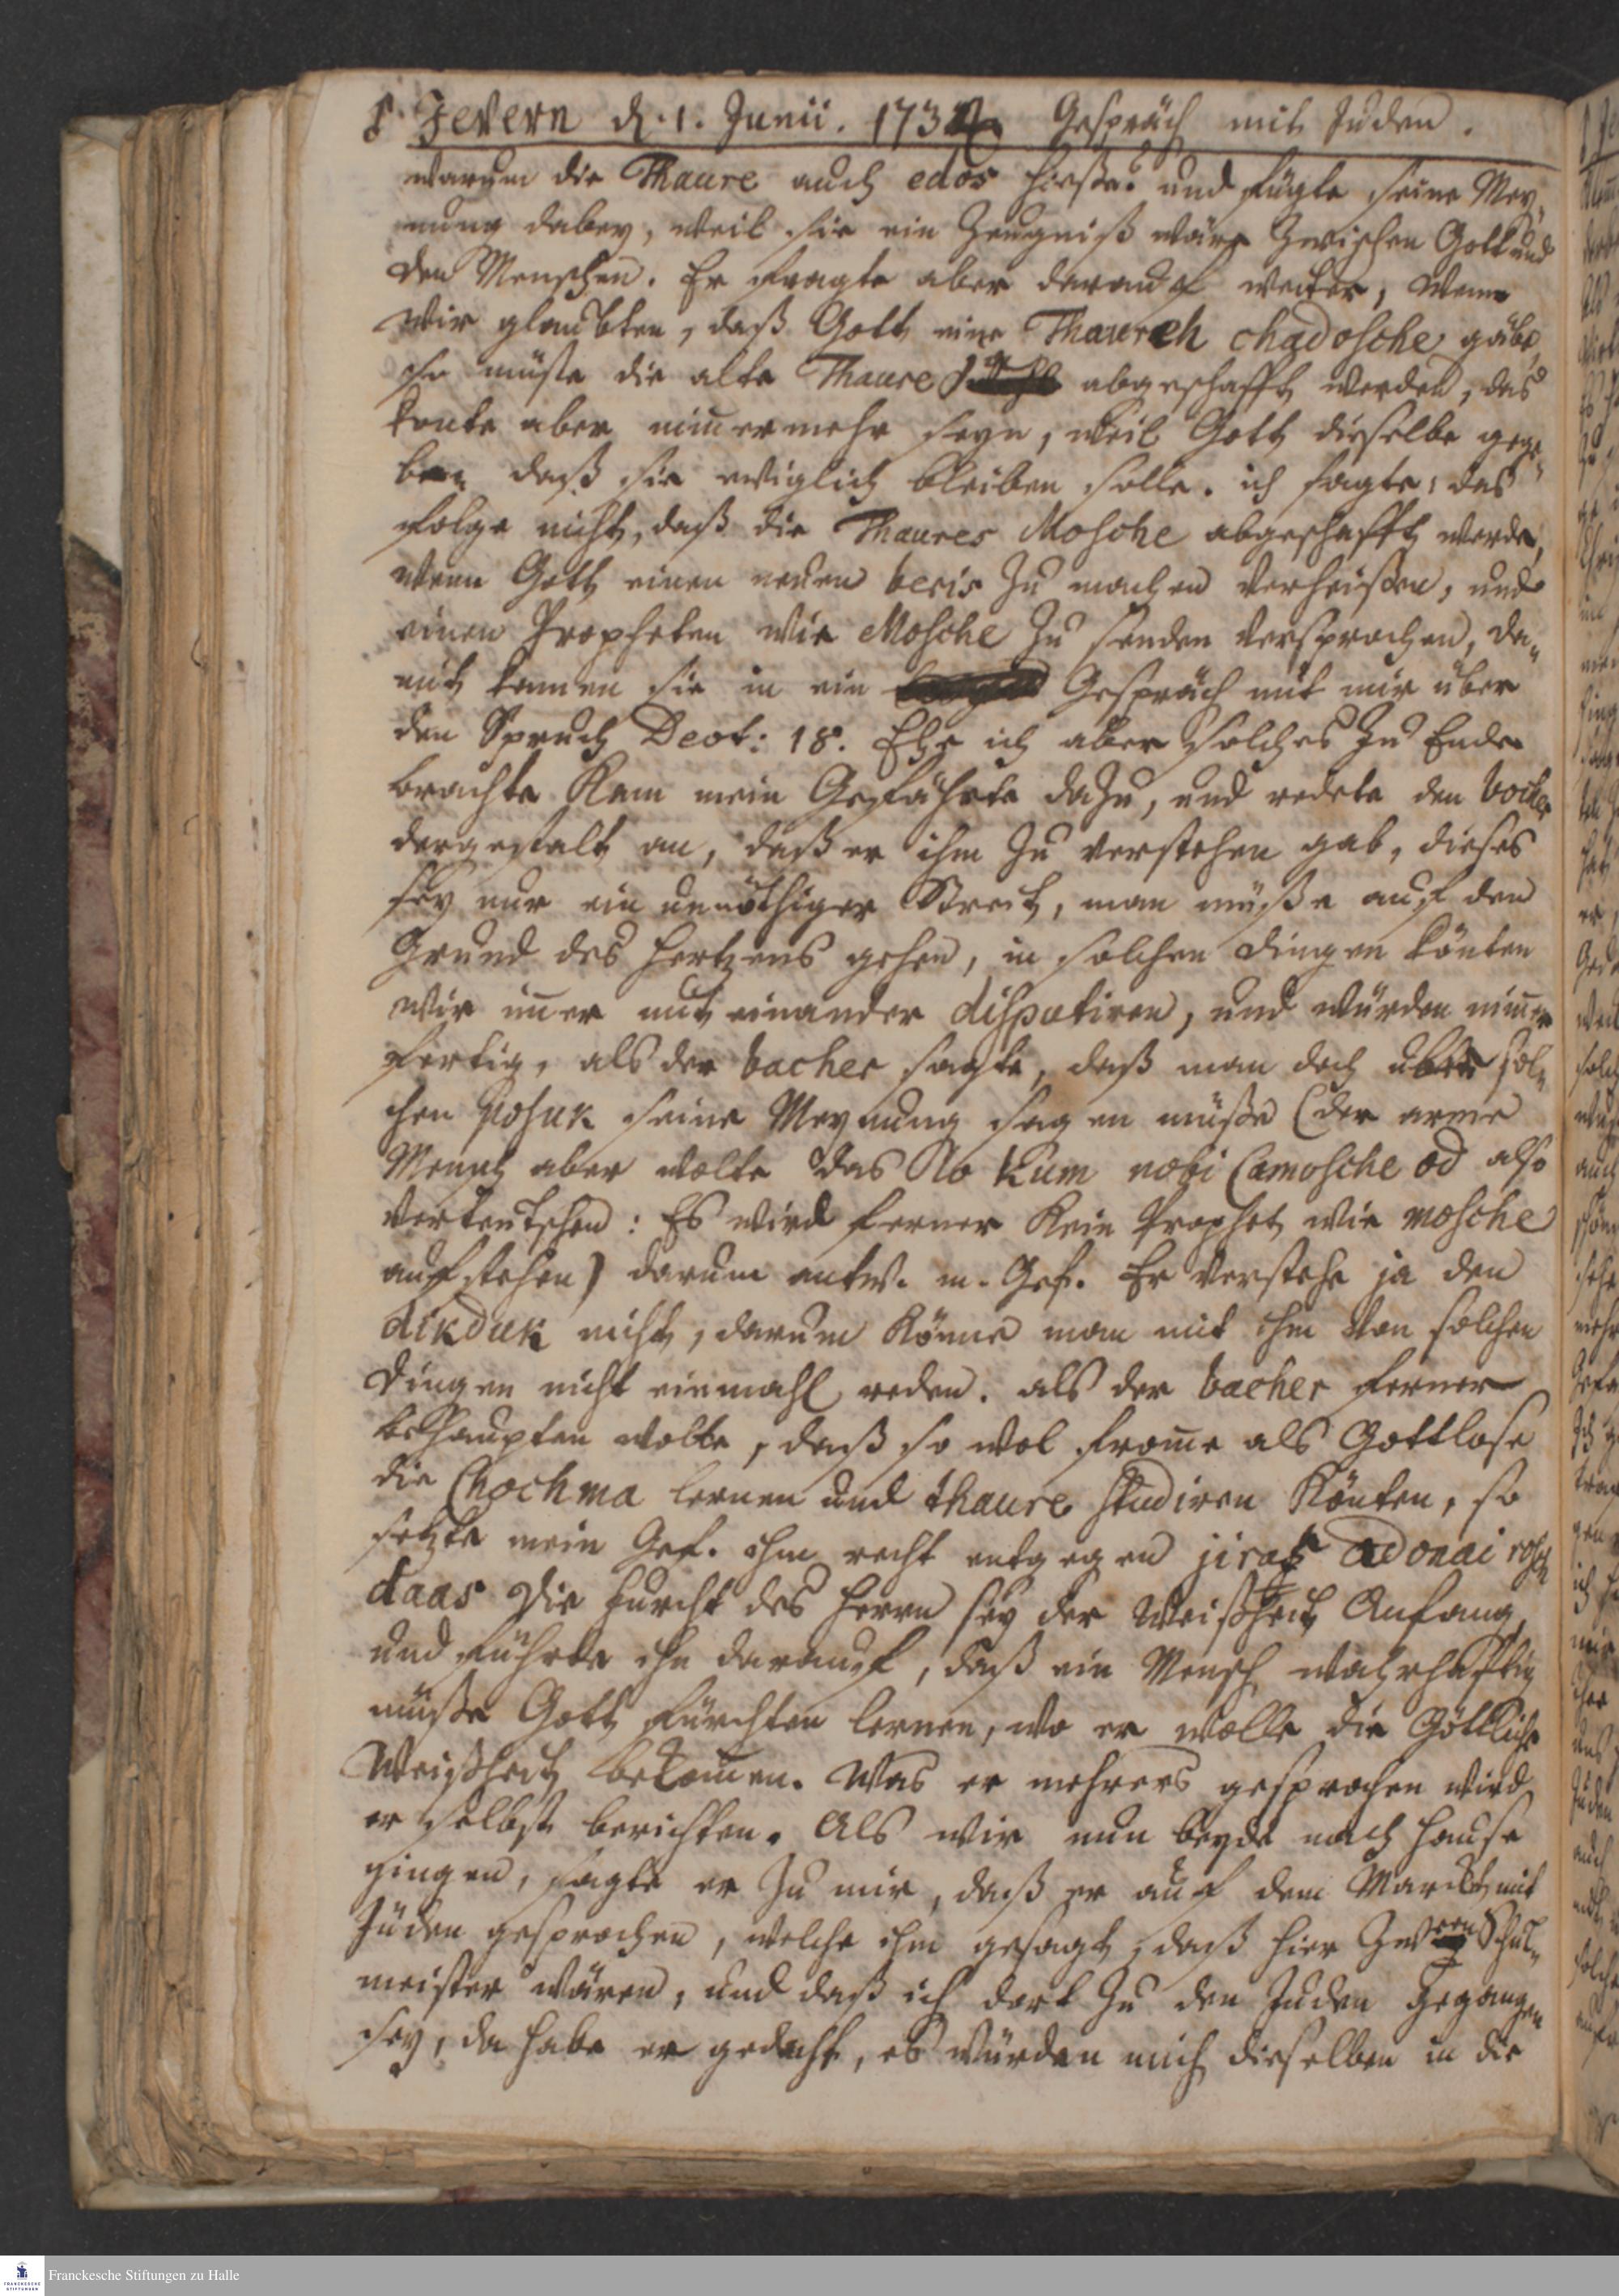 Jevern d. 1. Junii. 1732 Gespräch mit Juden.
warum die Thaure auch edos hieße? und fügte seine Mey¬
nung dabey, weil sie ein Zeugniß wäre zwischen Gott und
den Menschen. Er fragte aber darauf weiter, wenn
wir glaubten, daß Gott eine Thaureh chadosche gäbe,
so müste die alte Thaure ja abgeschafft werden, das
könte aber nimermehr seyn, weil Gott dieselbe gege¬
ben daß sie ewiglich bleiben solle. ich sagte: das
folge nicht, daß die Thaures Mosche abgeschafft werde,
wenn Gott einen neuen beris zu machen verheißen, und
einen Propheten wie Mosche zu senden versprochen, da¬
mit kamen sie in ein Gespräch mit mir über
den Spruch Deot: 18. Ehe ich aber solches zu Ende
brachte Kam mein Gefährte dazu, und redete den bocher
dergestalt an, daß er ihm zu verstehen gab, dieses
sey nur ein unnöthiger Streit, man müße auf den
Grund des Hertzens gehen, in solchen dingen könten
wir imer mit einander disputiren, und würden nimer
fertig, als der bacher sagte, daß man doch über sol¬
chen Posuk seine Meynung sagen müße (der arme
Mensch aber wolte das lo kum nobi Camosche od also
verteutschen: Es wird ferner Kein Prophet wie mosche
aufstehen) darum antw. m. Gef. Er verstehe ja den
dikduk nicht, darum Könne man mit ihm von solchen
Dingen nicht einmahl reden. als der bacher ferner
behaupten wolte, daß so wol frome als Gottlose
die Chochma lernen und thaure studiren Könten, so
setzte mein Gef. ihm recht entgegen jiras Adonai rosch
daas die Furcht des Herrn sey der Weißheit Anfang,
und führte ihn darauf, daß ein Mensch wahrhafftig
müße Gott fürchten lernen, wo er wolle die Göttliche
Weißheit bekomen. Was er mehrers gesprochen wird
er selbst berichten. Als wir nun beyde nach Hause
gingen, sagte er zu mir, daß er auf dem Marckt mit
Juden gesprochen, welche ihm gesagt, daß hier zween Schul¬
meister wären, und daß ich dort zu den Juden gegangen
sey, da habe er gedacht, es würden mich dieselben in die
Franckesche Stiftungen zu Halle